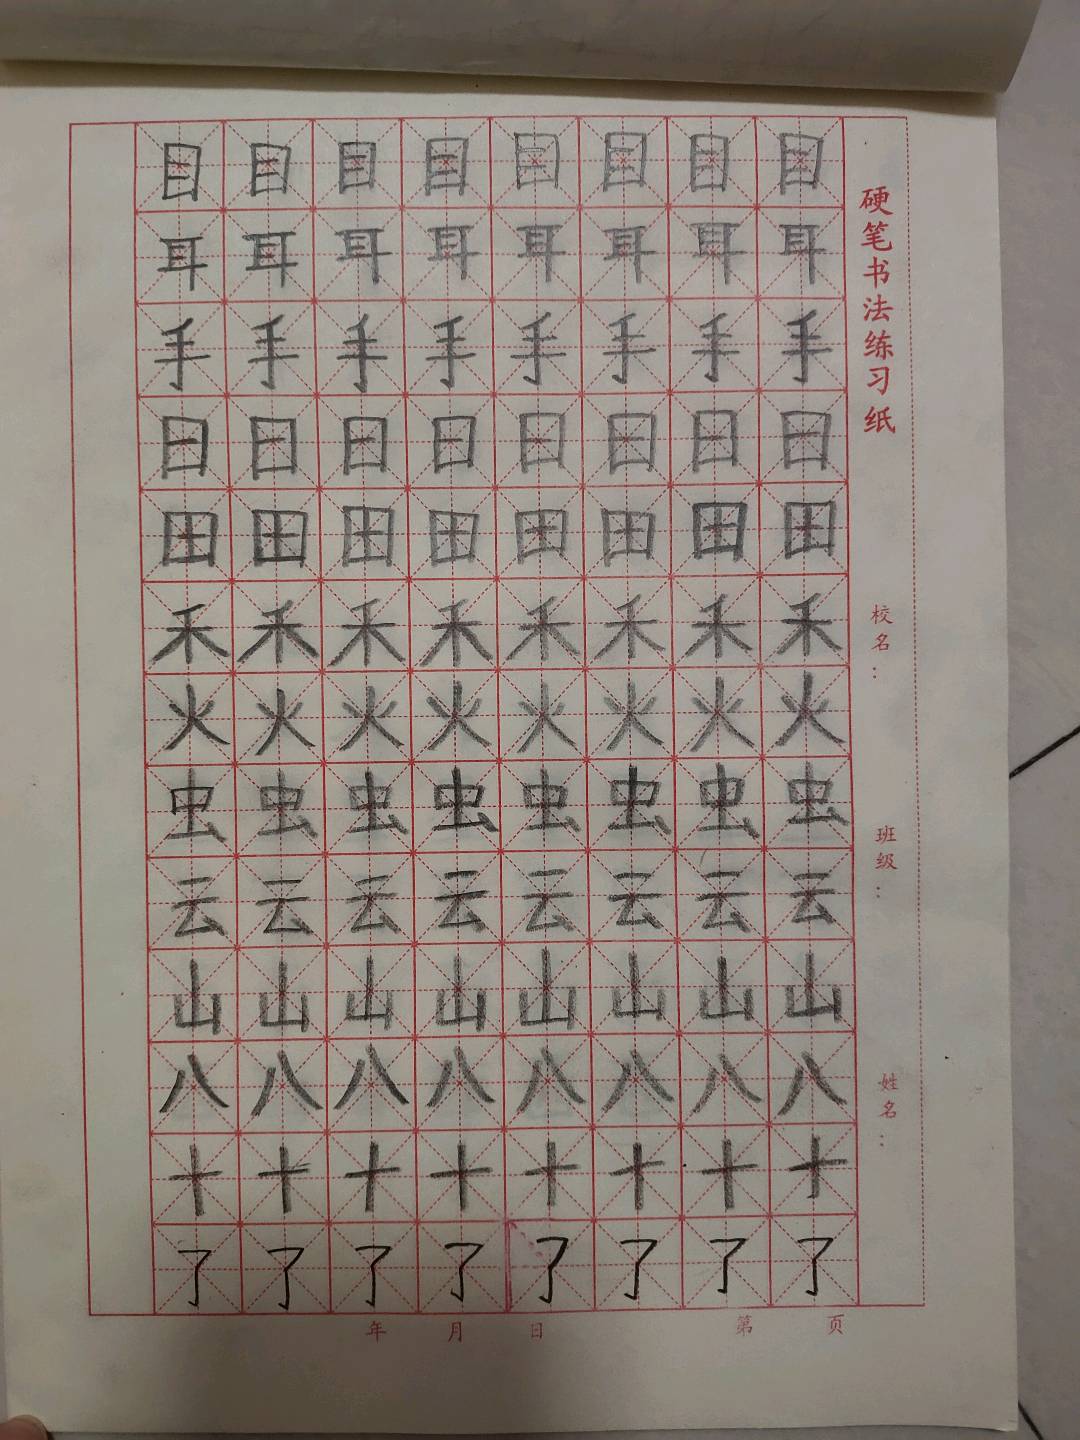 目目目目目目目目
耳耳耳耳耳耳耳耳
手手手手手手手手
日日日日日日日日
田田田田田田田田
禾禾禾禾禾禾禾禾
火火火火火火火火
虫虫虫虫虫虫虫虫
云云云云云云云云
山山山山山山山山
八八八八八八八八
十十十十十十十十
了了了了了了了了
硬笔书法练习纸
校名：
班级：
姓名：
年 月 日 第 页